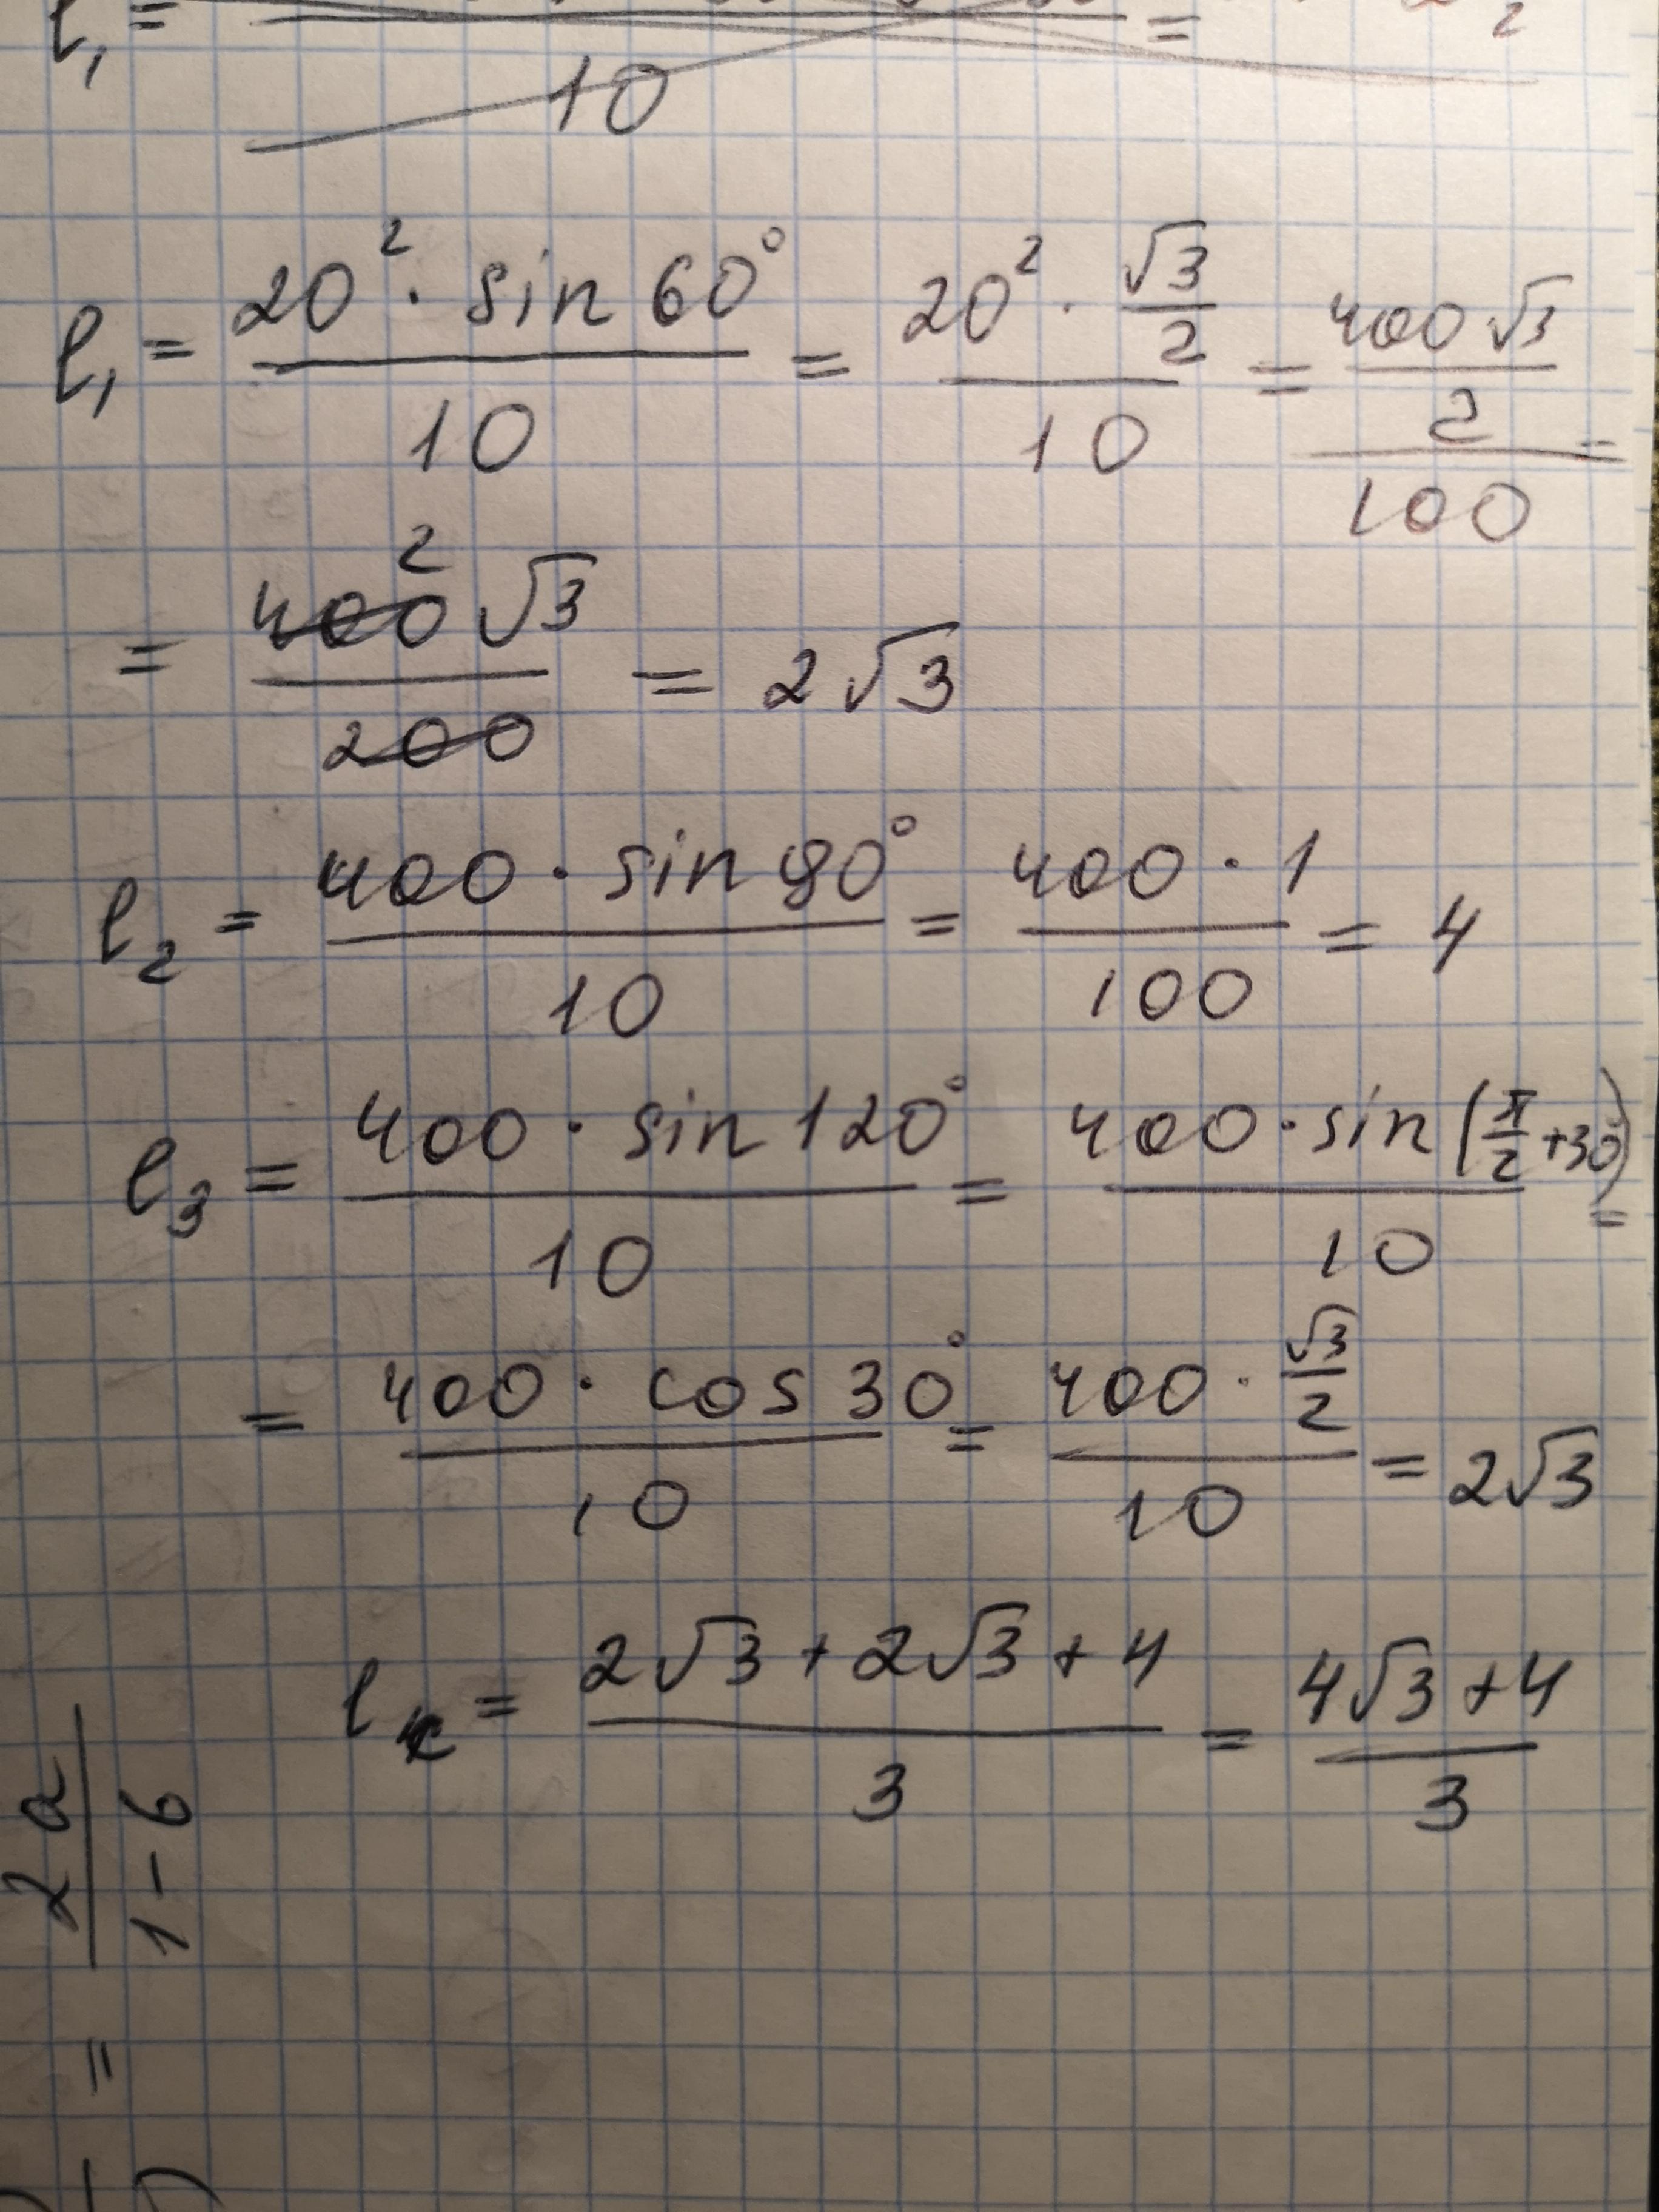 l₁ = / 10 =
l₁ = 20² · sin 60° / 10 = 20² · √3/2 / 10 = 400√3 / 2 / 100 =
= 400√3 / 200 = 2√3
2
l₂ = 400 · sin 90° / 10 = 400 · 1 / 100 = 4
l₃ = 400 · sin 120° / 10 = 400 · sin (π/2 + 30°) / 10 =
= 400 · cos 30° / 10 = 400 · √3/2 / 10 = 2√3
lₖ = 2√3 + 2√3 + 4 / 3 = 4√3 + 4 / 3
= 2a / 1 - 6